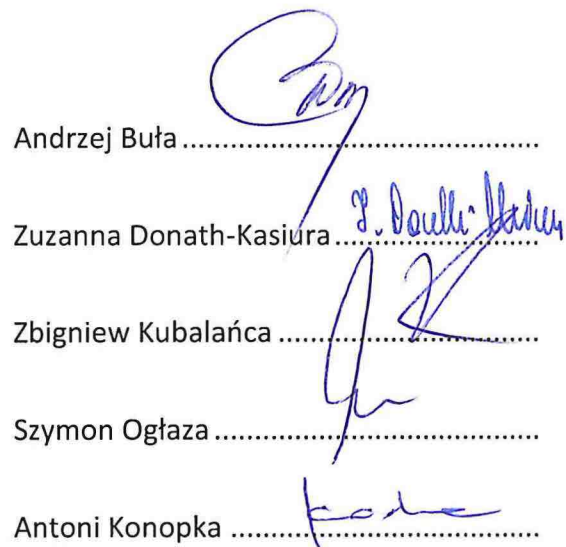 Andrzej Buła ..........................................
Zuzanna Donath-Kasiura ..........................
Zbigniew Kubalańca ................................
Szymon Ogłaza ........................................
Antoni Konopka ......................................